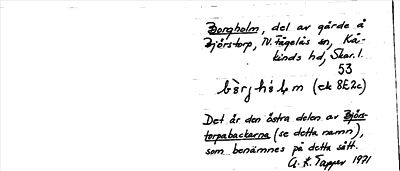 Borgholm, del av gärde å
Björstorp, N. Fägelås sn, Kå-
kinds hd, Skar. l.
53
bòrghòlm (ek 8E2c)
Det är den östra delen av Björs-
torpabackarna (se detta namn),
som benämnes på detta sätt.
A. R. Tapper 1971